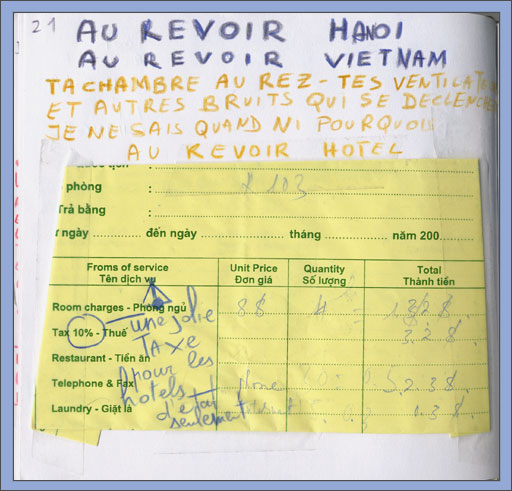 21
AU REVOIR HANOI
AU REVOIR VIETNAM
TA CHAMBRE AU REZ - TES
ET AUTRES BRUITS QUI SE
JE NE SAIS QUAND NI POURQUOI
AU REVOIR HOTEL
phòng : 103
Trả bằng :
ngày .................... đến ngày .................... tháng .................... năm 200......
Froms of service Unit Price Quantity Total
Tên dịch vụ Đơn giá Số lượng Thành tiền
Room charges - Phòng ngủ 8$ 4
Tax 10% - Thuế 3.2$
Restaurant - Tiền ăn
Telephone & Fax phone
Laundry - Giặt là
une jolie
TAXE
pour les
hotels
d'etat
seulement